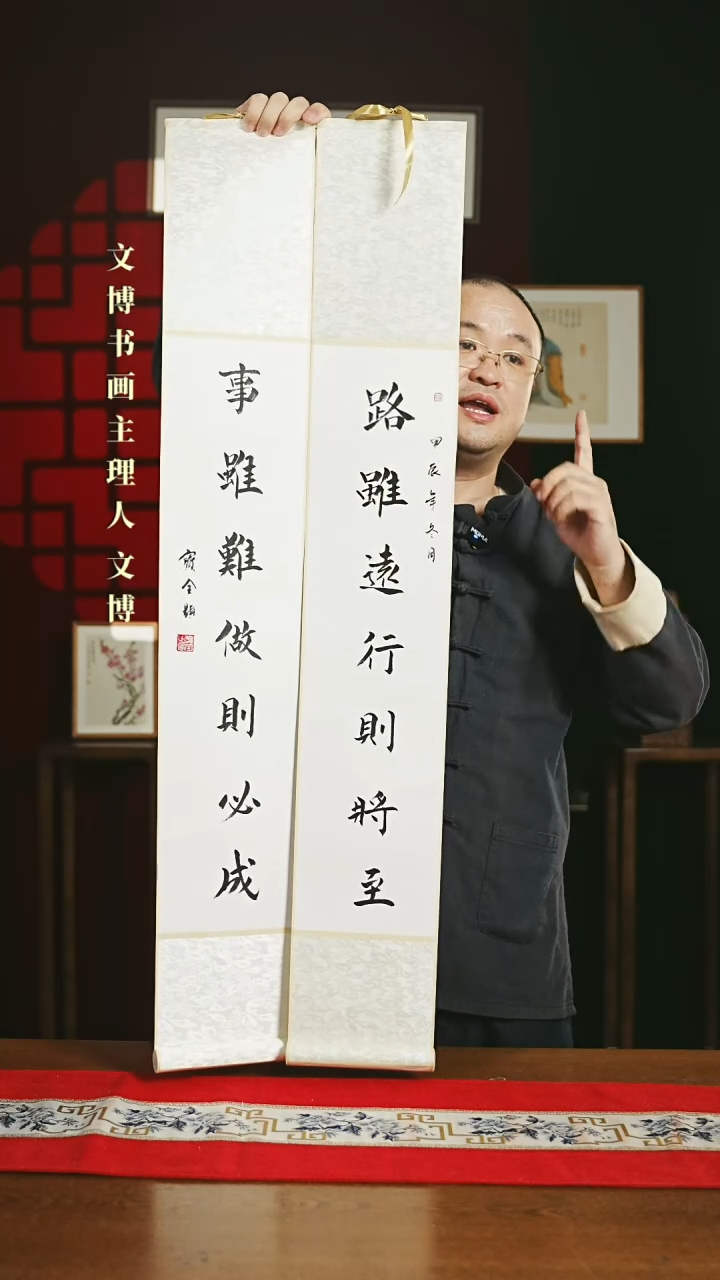 文博书画主理人文博
路雖遠行則將至
甲辰年冬月
事雖難做則必成